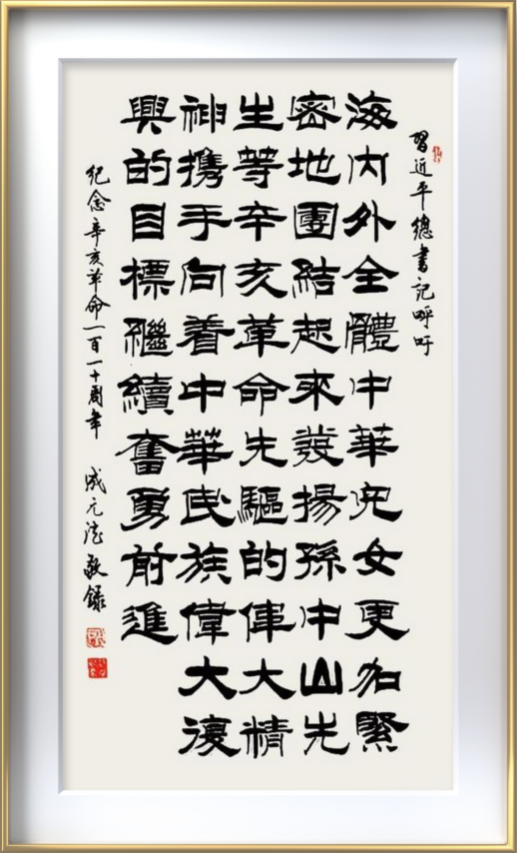 習近平總書記呼吁
海内外全體中華兒女更加緊
密地團結起來發揚孫中山先
生等辛亥革命先驅的偉大精
神携手向着中華民族偉大復
興的目標繼續奮勇前進
紀念辛亥革命一百一十周年 成元法敬録